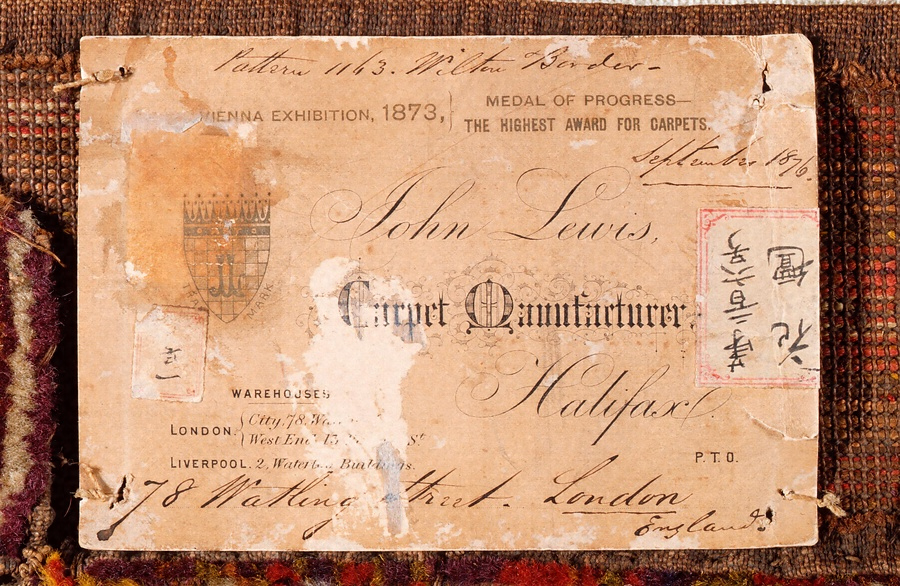 Pattern 1163. Wilton Border-
VIENNA EXHIBITION, 1873,
MEDAL OF PROGRESS—
THE HIGHEST AWARD FOR CARPETS.
September 1876.
John Lewis,
MARK
Carpet Manufacturer,
Halifax.
WAREHOUSES
LONDON. City, 78,
West End 13 St
LIVERPOOL. 2, Waterloo Buildings.
P.T.O.
78 Watling Street. London
England
第二百六号